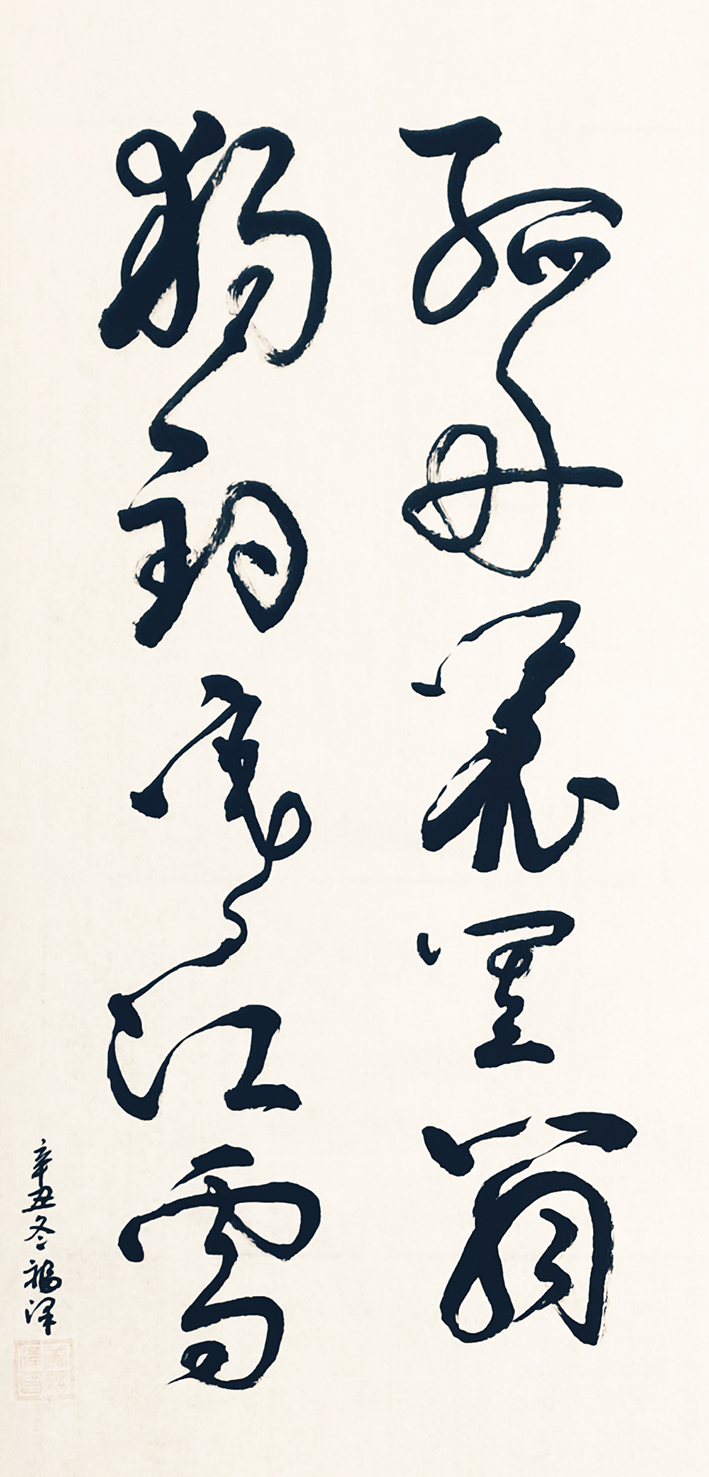 孤舟蓑笠翁
獨釣寒江雪
辛丑冬福泽